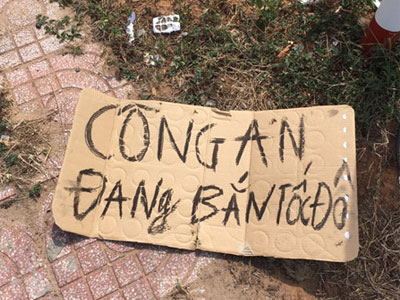 CÔNG AN,
ĐANg BẮN TỐC ĐỘ